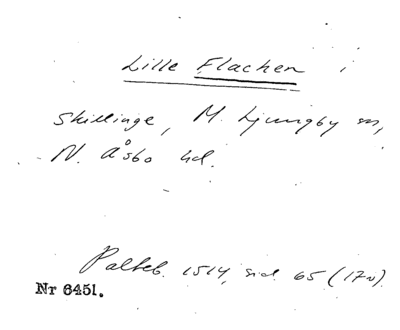 Lille Flachen
Skillinge, M. Ljungby sn,
N. Åsbo hd.
Palteb. 1514, sid 65 (170).
Nr 6451.